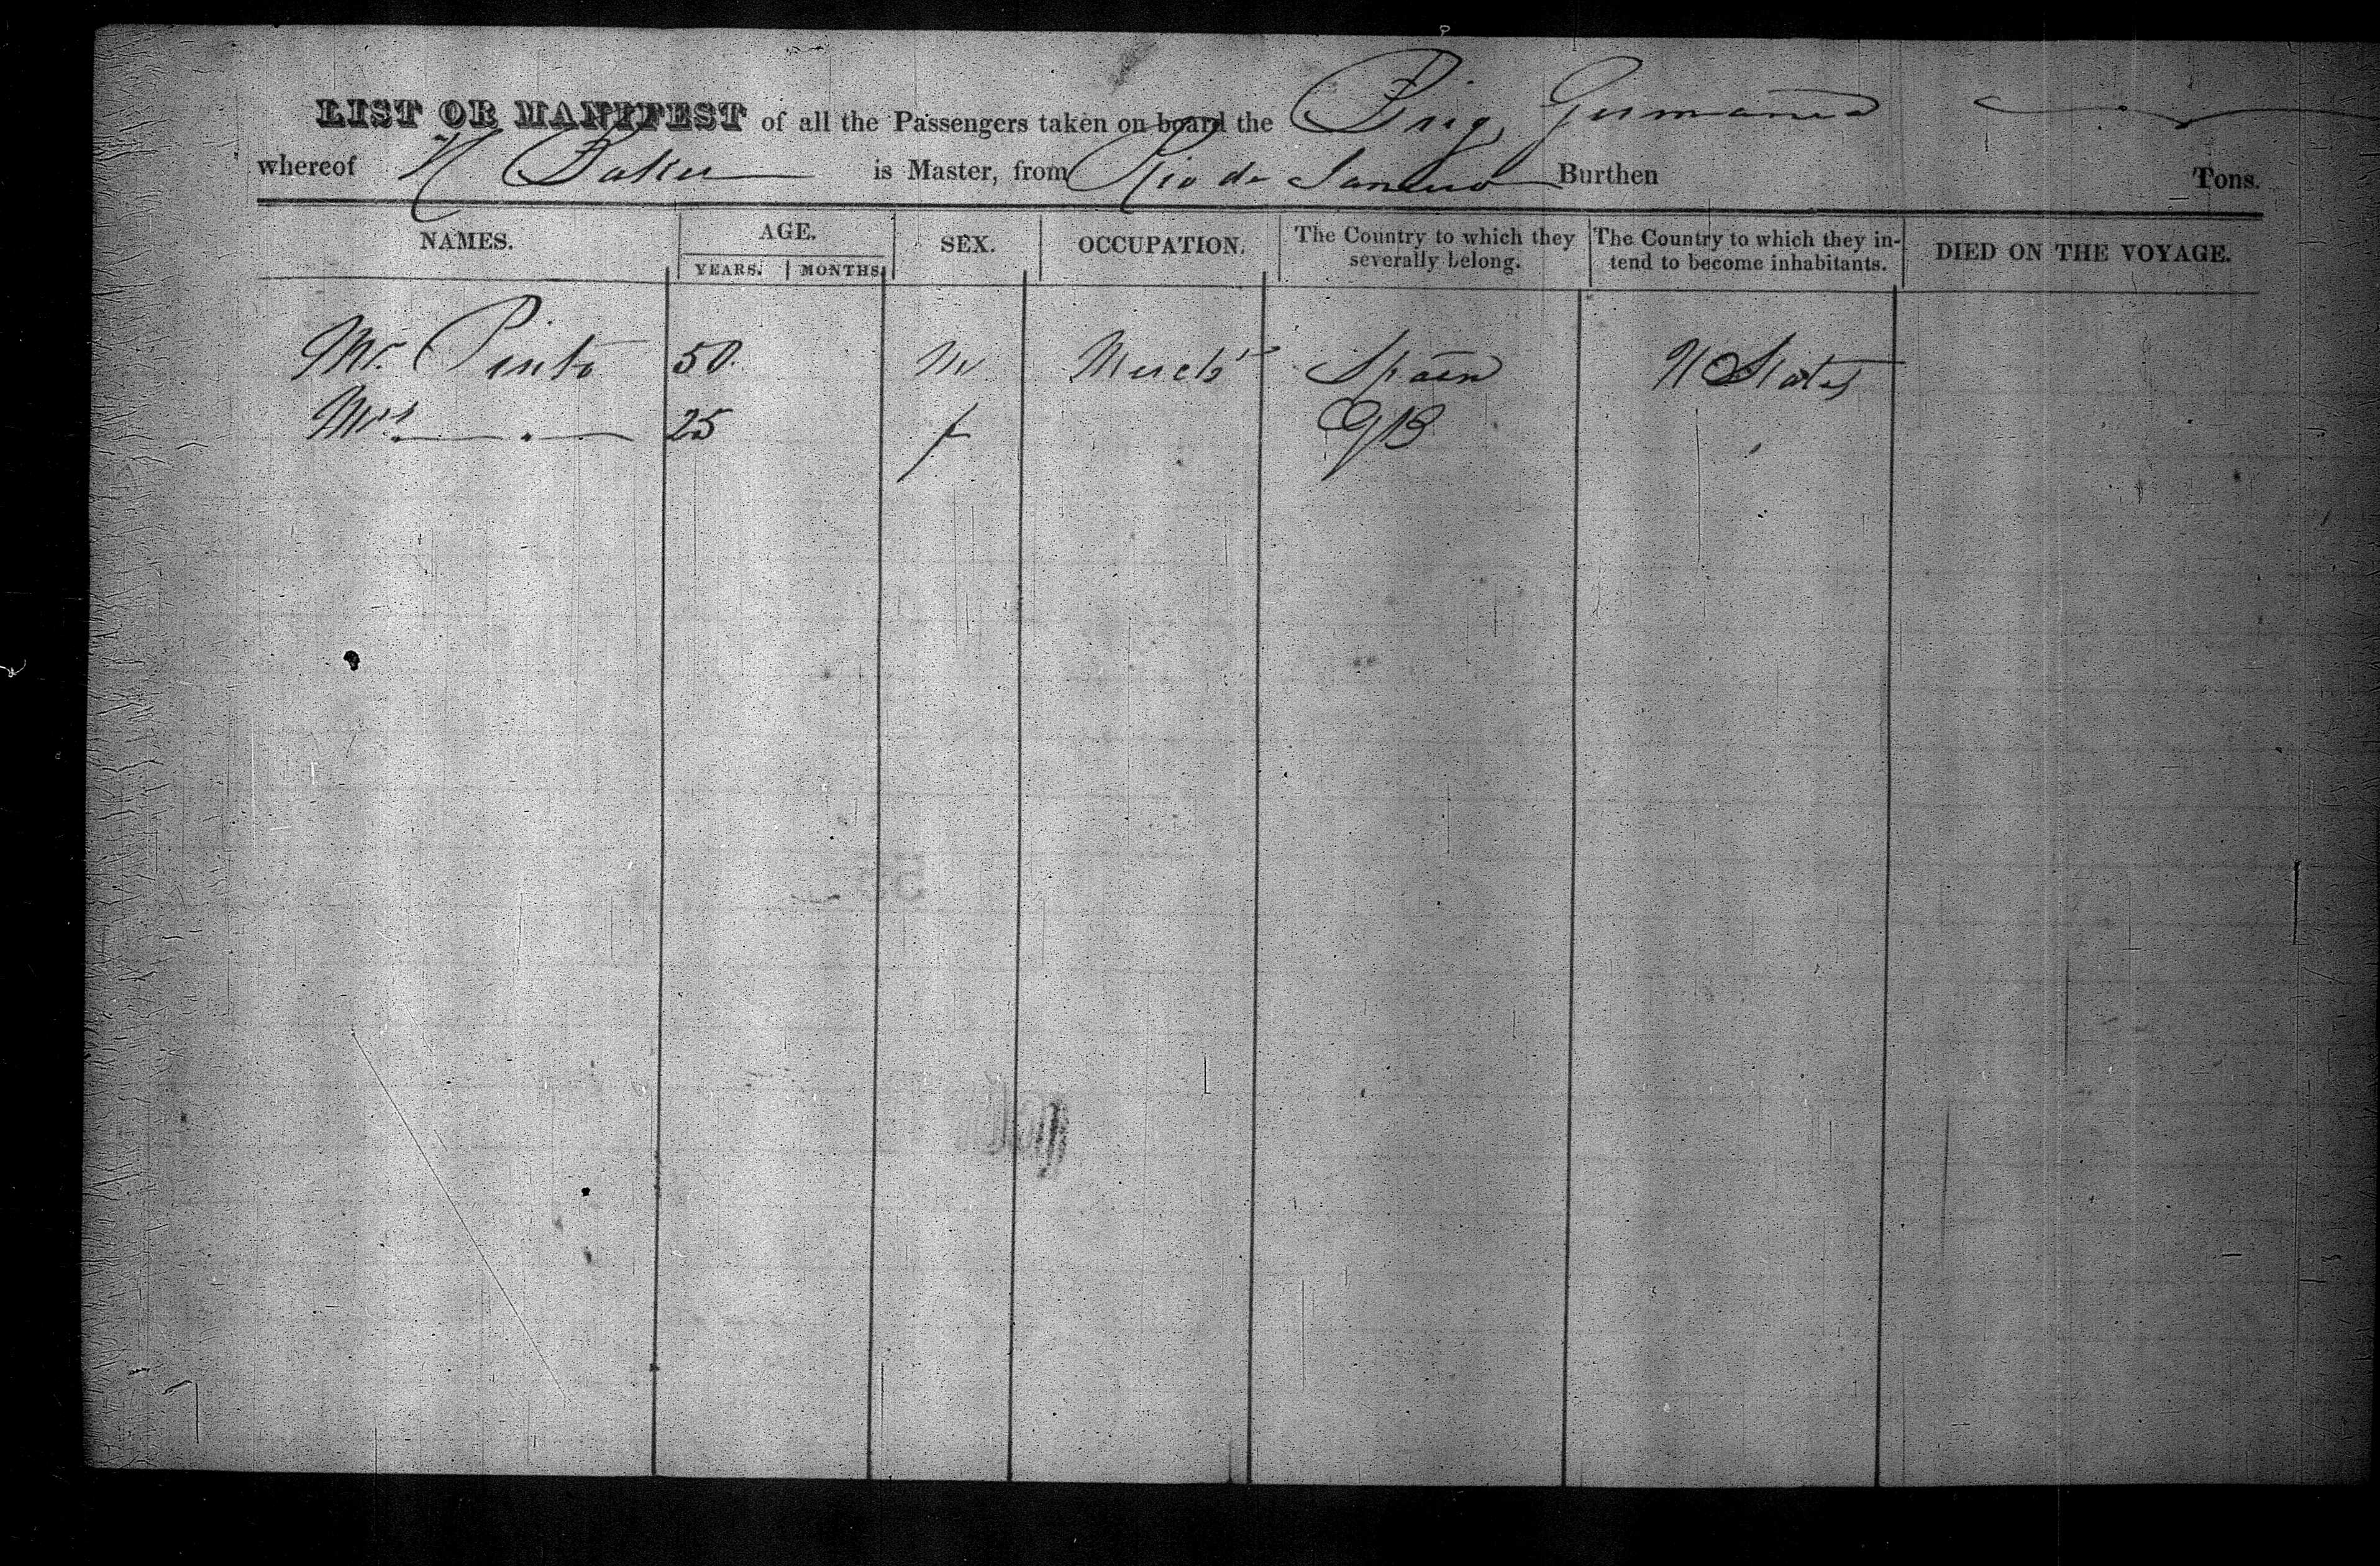 LIST OR MANIFEST of all the Passengers taken on board the Brig Germania
whereof N Baker is Master, from Rio de Janeiro Burthen Tons.
NAMES. AGE. SEX. OCCUPATION. The Country to which they severally belong. The Country to which they intend to become inhabitants. DIED ON THE VOYAGE.
YEARS. MONTHS.
Mr. Pinto 50 M Merch't Spain U States
Mrs. " 25 f GB